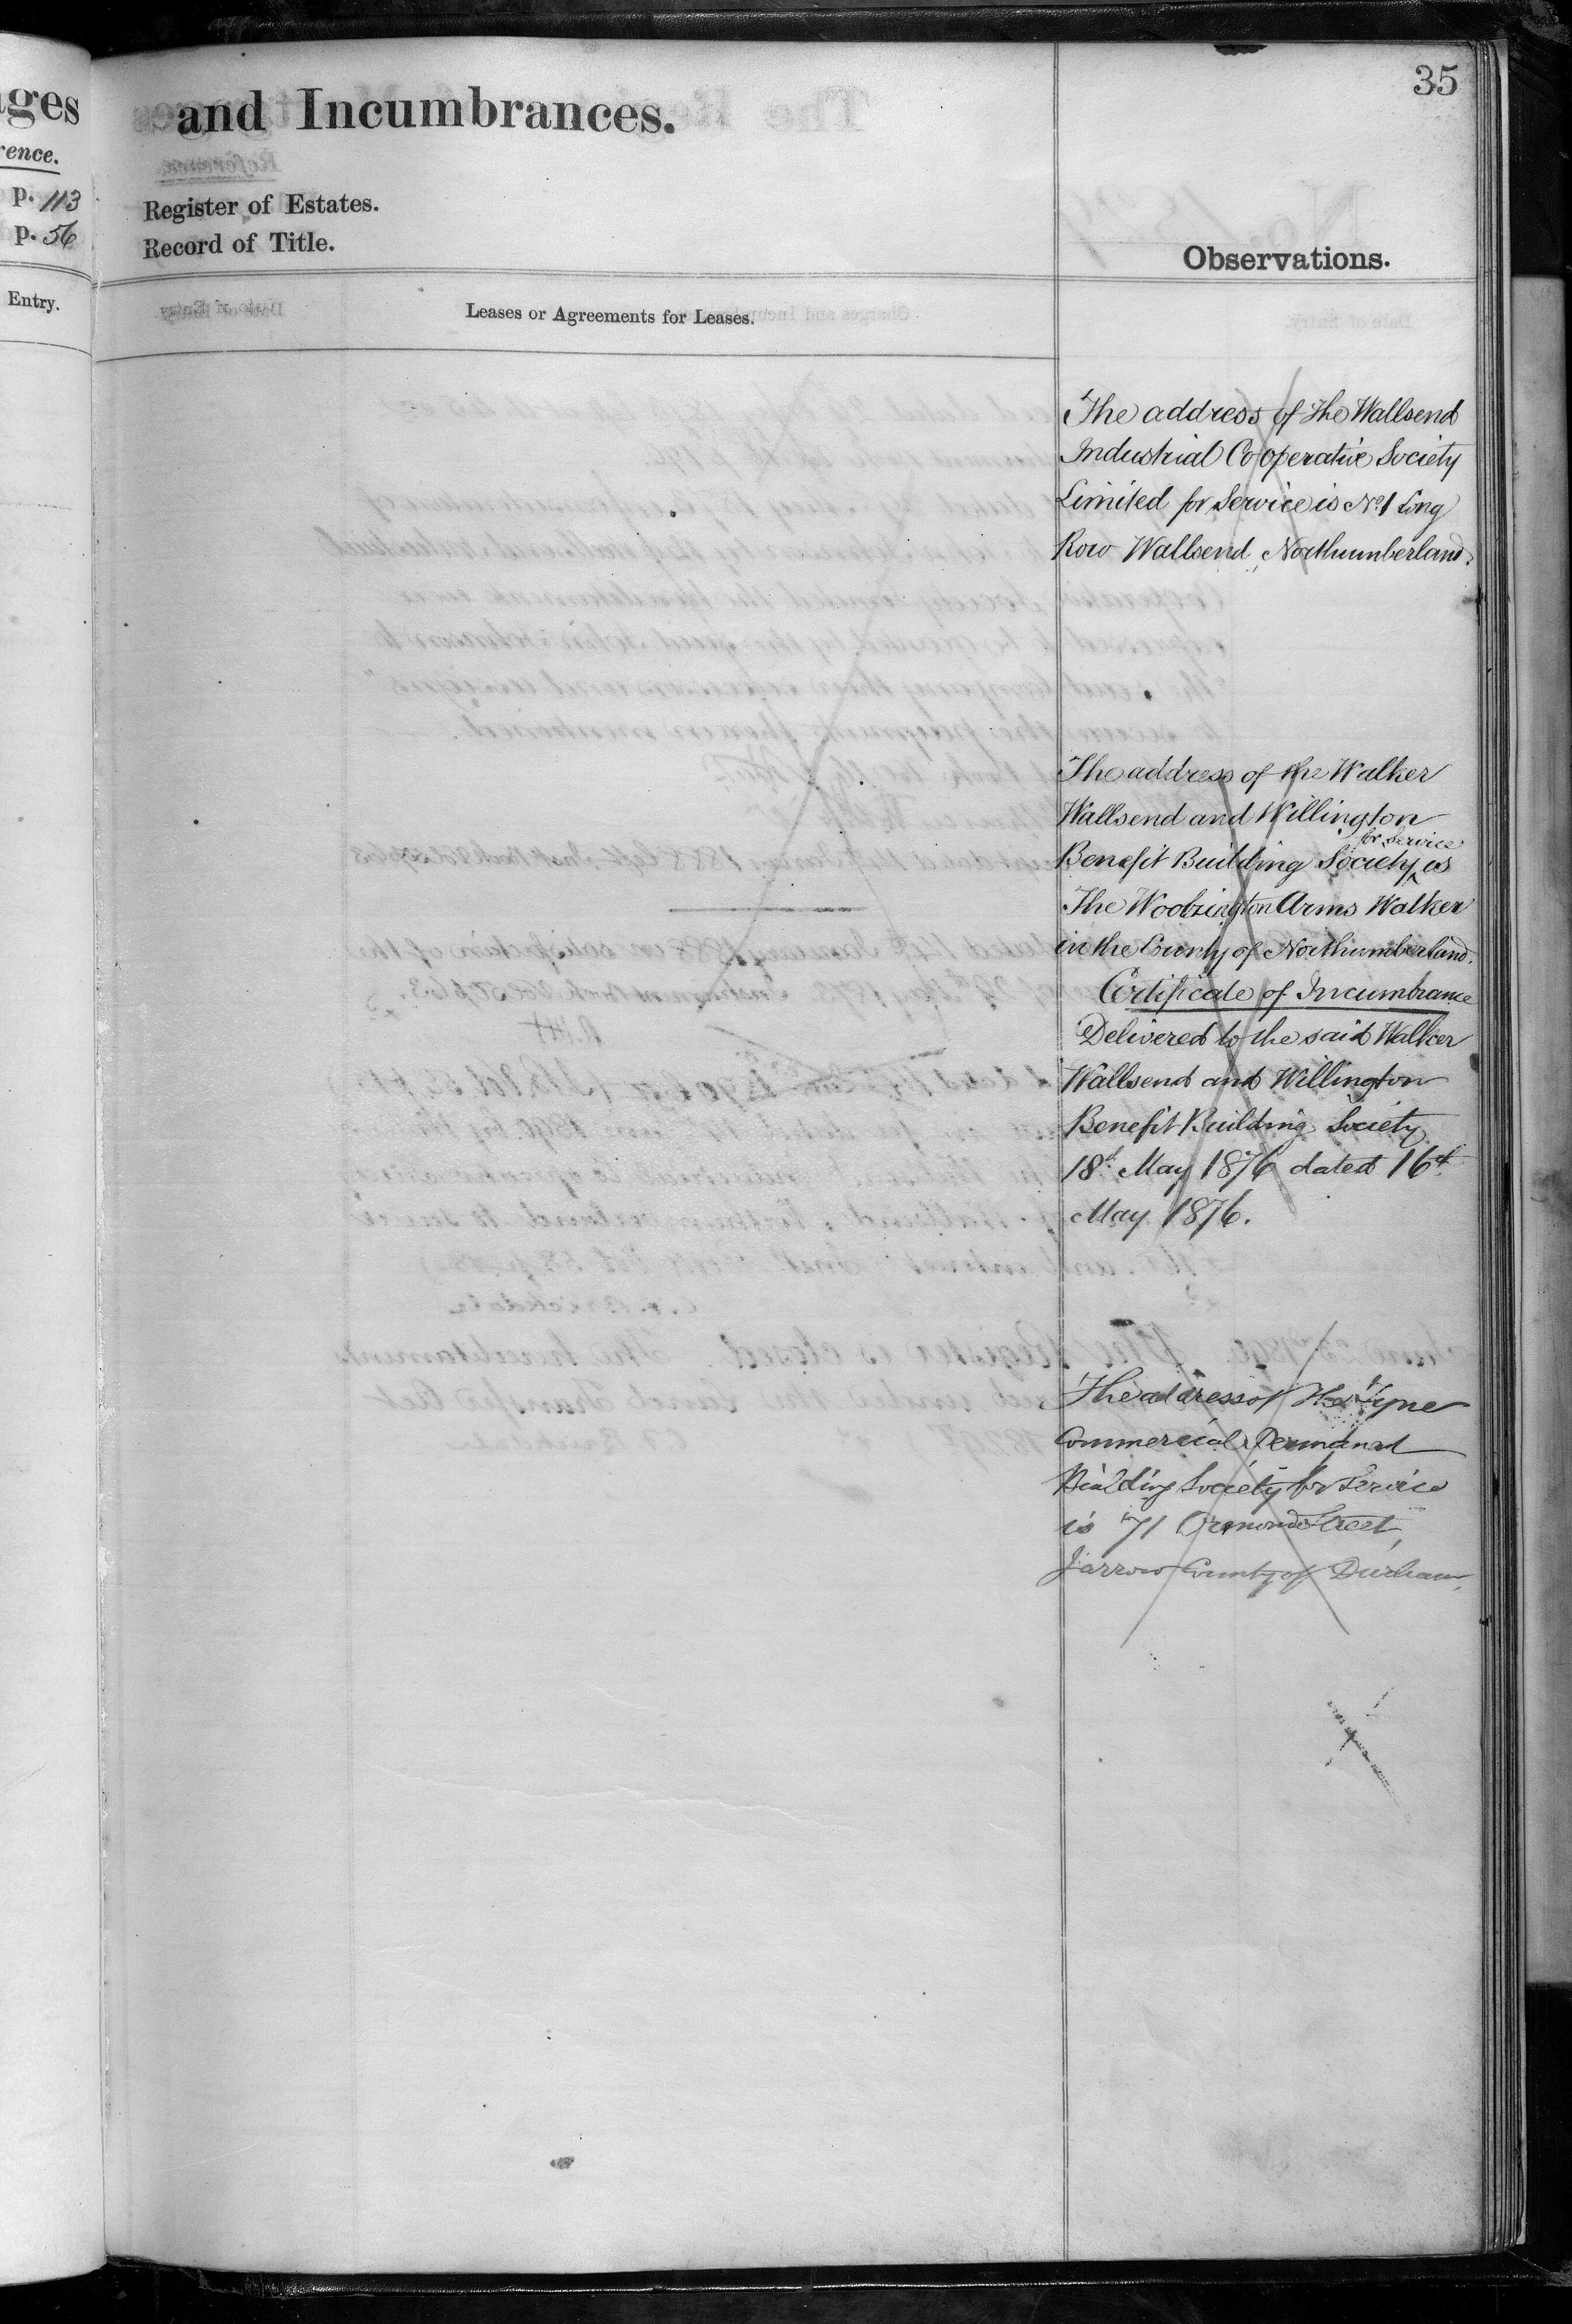 35
ages
and Incumbrances.
rence.
p. 113
Register of Estates.
p. 56
Record of Title.
Observations.
Entry.
Leases or Agreements for Leases.
The address of The Wallsend
Industrial Cooperative Society
Limited for Service is No 1 Long
Row Wallsend, Northumberland.
The address of the Walker
Wallsend and Willington
for Service
Benefit Building Society is
The Woolsington Arms Walker
in the County of Northumberland.
Certificate of Incumbrance
Delivered to the said Walker
Wallsend and Willington
Benefit Building Society
18th May 1876 dated 16th
May 1876.
The address of The Tyne
Commercial Permanent
Building Society for Service
is 71 Ormonde Street,
Jarrow County of Durham.